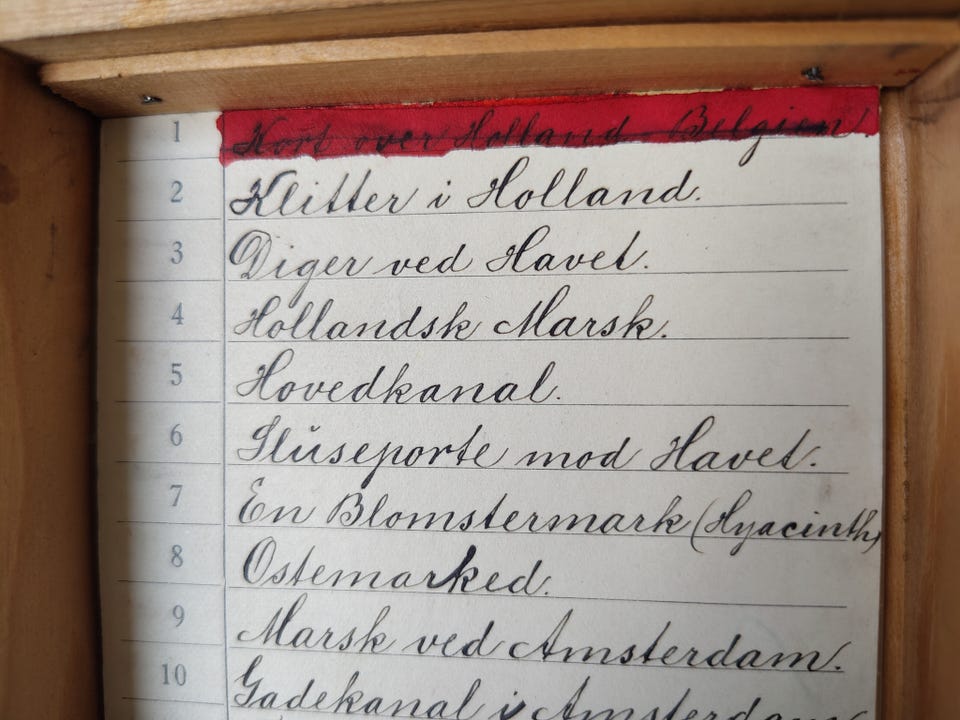 1 Kort over Holland - Belgien.
2 Klitter i Holland.
3 Diger ved Havet.
4 Hollandsk Marsk.
5 Hovedkanal.
6 Sluseporte mod Havet.
7 En Blomstermark (Hyacinth)
8 Ostemarked.
9 Marsk ved Amsterdam.
10 Gadekanal i Amsterdam